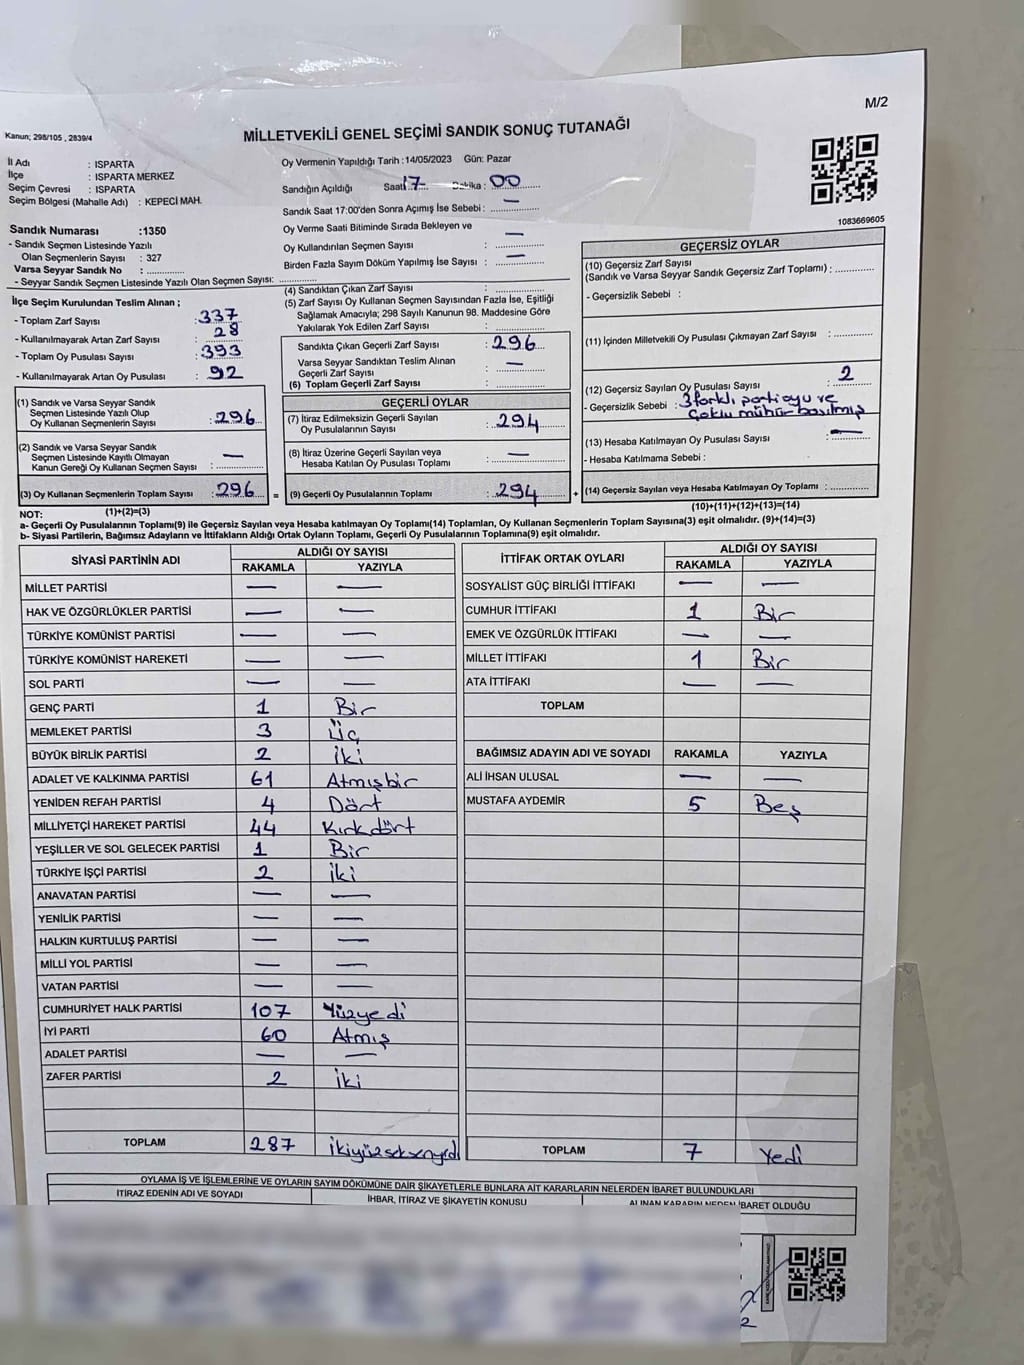 M/2
Kanun; 298/105 , 2839/4
MİLLETVEKİLİ GENEL SEÇİMİ SANDIK SONUÇ TUTANAĞI
İl Adı : ISPARTA
İlçe : ISPARTA MERKEZ
Seçim Çevresi : ISPARTA
Seçim Bölgesi (Mahalle Adı) : KEPECİ MAH.
Oy Vermenin Yapıldığı Tarih : 14/05/2023 Gün: Pazar
Sandığın Açıldığı Saat: 17 Dakika : 00
Sandık Saat 17:00'den Sonra Açımış İse Sebebi : —
Oy Verme Saati Bitiminde Sırada Bekleyen ve
Oy Kullandırılan Seçmen Sayısı : —
Birden Fazla Sayım Döküm Yapılmış İse Sayısı : —
1083669605
Sandık Numarası :1350
- Sandık Seçmen Listesinde Yazılı
Olan Seçmenlerin Sayısı : 327
Varsa Seyyar Sandık No :
- Seyyar Sandık Seçmen Listesinde Yazılı Olan Seçmen Sayısı:
İlçe Seçim Kurulundan Teslim Alınan ;
- Toplam Zarf Sayısı : 337
- Kullanılmayarak Artan Zarf Sayısı : 28
- Toplam Oy Pusulası Sayısı : 393
- Kullanılmayarak Artan Oy Pusulası : 92
(1) Sandık ve Varsa Seyyar Sandık
Seçmen Listesinde Yazılı Olup
Oy Kullanan Seçmenlerin Sayısı : 296
(2) Sandık ve Varsa Seyyar Sandık
Seçmen Listesinde Kayıtlı Olmayan
Kanun Gereği Oy Kullanan Seçmen Sayısı : —
(3) Oy Kullanan Seçmenlerin Toplam Sayısı : 296 =
(1)+(2)=(3)
(4) Sandıktan Çıkan Zarf Sayısı :
(5) Zarf Sayısı Oy Kullanan Seçmen Sayısından Fazla İse, Eşitliği
Sağlamak Amacıyla; 298 Sayılı Kanunun 98. Maddesine Göre
Yakılarak Yok Edilen Zarf Sayısı :
Sandıkta Çıkan Geçerli Zarf Sayısı : 296
Varsa Seyyar Sandıktan Teslim Alınan
Geçerli Zarf Sayısı : —
(6) Toplam Geçerli Zarf Sayısı :
GEÇERLİ OYLAR
(7) İtiraz Edilmeksizin Geçerli Sayılan
Oy Pusulalarının Sayısı : 294
(8) İtiraz Üzerine Geçerli Sayılan veya
Hesaba Katılan Oy Pusulası Toplamı : —
(9) Geçerli Oy Pusulalarının Toplamı : 294 +
GEÇERSİZ OYLAR
(10) Geçersiz Zarf Sayısı
(Sandık ve Varsa Seyyar Sandık Geçersiz Zarf Toplamı) :
- Geçersizlik Sebebi :
(11) İçinden Milletvekili Oy Pusulası Çıkmayan Zarf Sayısı :
(12) Geçersiz Sayılan Oy Pusulası Sayısı : 2
- Geçersizlik Sebebi : 3 farklı parti oyu ve
Çoklu mühür basılmış
(13) Hesaba Katılmayan Oy Pusulası Sayısı : —
- Hesaba Katılmama Sebebi :
(14) Geçersiz Sayılan veya Hesaba Katılmayan Oy Toplamı :
(10)+(11)+(12)+(13)=(14)
NOT:
a- Geçerli Oy Pusulalarının Toplamı(9) ile Geçersiz Sayılan veya Hesaba katılmayan Oy Toplamı(14) Toplamları, Oy Kullanan Seçmenlerin Toplam Sayısına(3) eşit olmalıdır. (9)+(14)=(3)
b- Siyasi Partilerin, Bağımsız Adayların ve İttifakların Aldığı Ortak Oyların Toplamı, Geçerli Oy Pusulalarının Toplamına(9) eşit olmalıdır.
SİYASİ PARTİNİN ADI ALDIĞI OY SAYISI
RAKAMLA YAZIYLA
MİLLET PARTİSİ — —
HAK VE ÖZGÜRLÜKLER PARTİSİ — —
TÜRKİYE KOMÜNİST PARTİSİ — —
TÜRKİYE KOMÜNİST HAREKETİ — —
SOL PARTİ — —
GENÇ PARTİ 1 Bir
MEMLEKET PARTİSİ 3 Üç
BÜYÜK BİRLİK PARTİSİ 2 İki
ADALET VE KALKINMA PARTİSİ 61 Atmışbir
YENİDEN REFAH PARTİSİ 4 Dört
MİLLİYETÇİ HAREKET PARTİSİ 44 Kırkdört
YEŞİLLER VE SOL GELECEK PARTİSİ 1 Bir
TÜRKİYE İŞÇİ PARTİSİ 2 İki
ANAVATAN PARTİSİ — —
YENİLİK PARTİSİ — —
HALKIN KURTULUŞ PARTİSİ — —
MİLLİ YOL PARTİSİ — —
VATAN PARTİSİ — —
CUMHURİYET HALK PARTİSİ 107 Yüzyedi
İYİ PARTİ 60 Atmış
ADALET PARTİSİ — —
ZAFER PARTİSİ 2 İki
TOPLAM 287
İTTİFAK ORTAK OYLARI ALDIĞI OY SAYISI
RAKAMLA YAZIYLA
SOSYALİST GÜÇ BİRLİĞİ İTTİFAKI — —
CUMHUR İTTİFAKI 1 Bir
EMEK VE ÖZGÜRLÜK İTTİFAKI — —
MİLLET İTTİFAKI 1 Bir
ATA İTTİFAKI — —
TOPLAM
BAĞIMSIZ ADAYIN ADI VE SOYADI RAKAMLA YAZIYLA
ALİ İHSAN ULUSAL — —
MUSTAFA AYDEMİR 5 Beş
TOPLAM 7 Yedi
OYLAMA İŞ VE İŞLEMLERİNE VE OYLARIN SAYIM DÖKÜMÜNE DAİR ŞİKAYETLERLE BUNLARA AİT KARARLARIN NELERDEN İBARET BULUNDUKLARI
İTİRAZ EDENİN ADI VE SOYADI İHBAR, İTİRAZ VE ŞİKAYETİN KONUSU ALINAN KARARIN NEDEN İBARET OLDUĞU